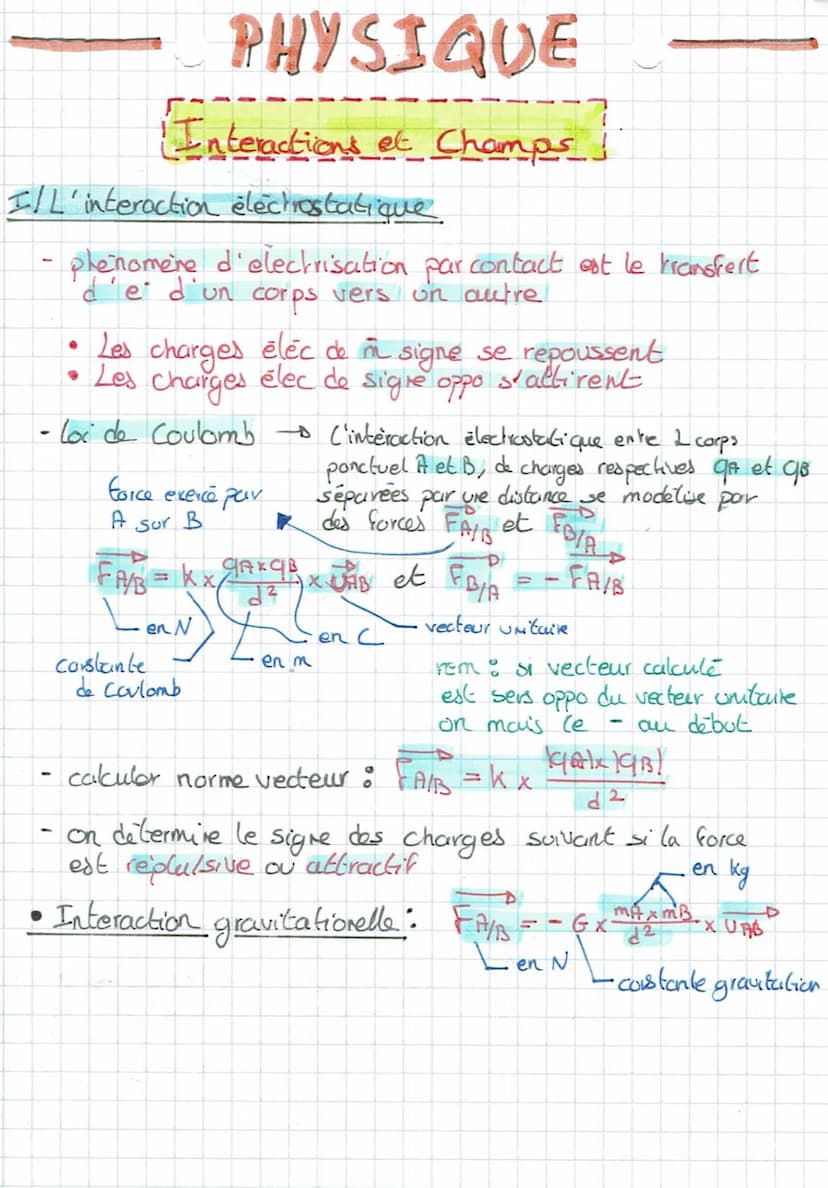 PHYSIQUE
Interactions et Champs
I/ L'interaction électrostatique
- phénomène d'electrisation par contact est le transfert
d'e- d'un corps vers un autre
• Les charges éléc de m̄ signe se repoussent
• Les charges élec de signe oppo s'attirent
- Loi de Coulomb → L'intéraction électrostatique entre 2 corps
ponctuel A et B, de charges respectives qA et qB
séparées par une distance se modélise par
des forces F⃗A/B et F⃗B/A
force exercé par
A sur B
F⃗A/B = k x (qA x qB)/d² x U⃗AB et F⃗B/A = - F⃗A/B
en N
en C
vecteur unitaire
constante
de Coulomb
en m
rem : si vecteur calculé
est sens oppo du vecteur unitaire
on mais le - au début
- calculer norme vecteur : F⃗A/B = k x (|qA| x |qB|)/d²
- on détermine le signe des charges suivant si la force
est réplulsive ou attractif
en kg
• Interaction gravitationelle : F⃗A/B = - G x (mA x mB)/d² x U⃗AB
en N
constante gravitation